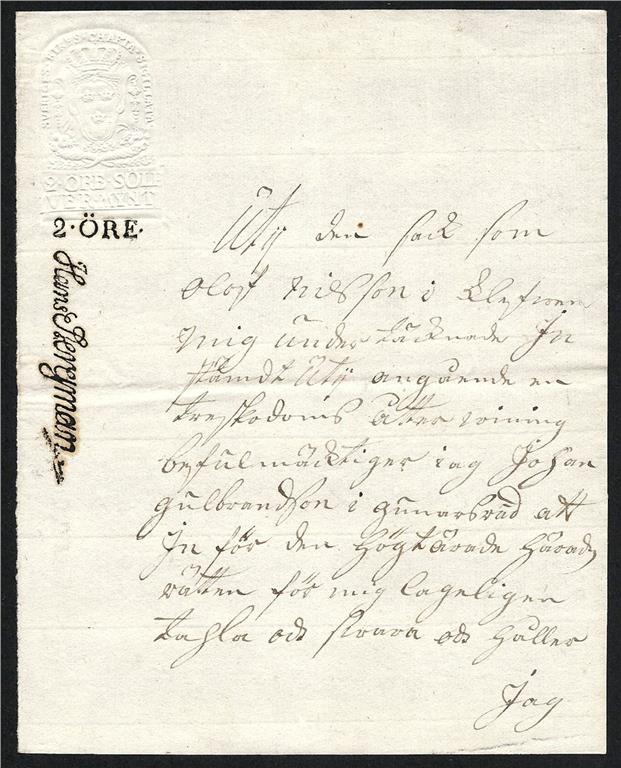 SVERIGES RIKES CHARTÆ
2·ÖRE·SÖLF
VERMYNT
2·ÖRE·
Hans Bergman
Uty den sack som
olof nilsson i Elefwen
mig under täcknade In
stämdt Uty angående en
treskodoms åtter vining
befulmäcktiger iag Johan
gulbrandson i gunarsräd att
In för den högtärade härads
rätten för mig lageligen
tahla och svara och håller
Jag